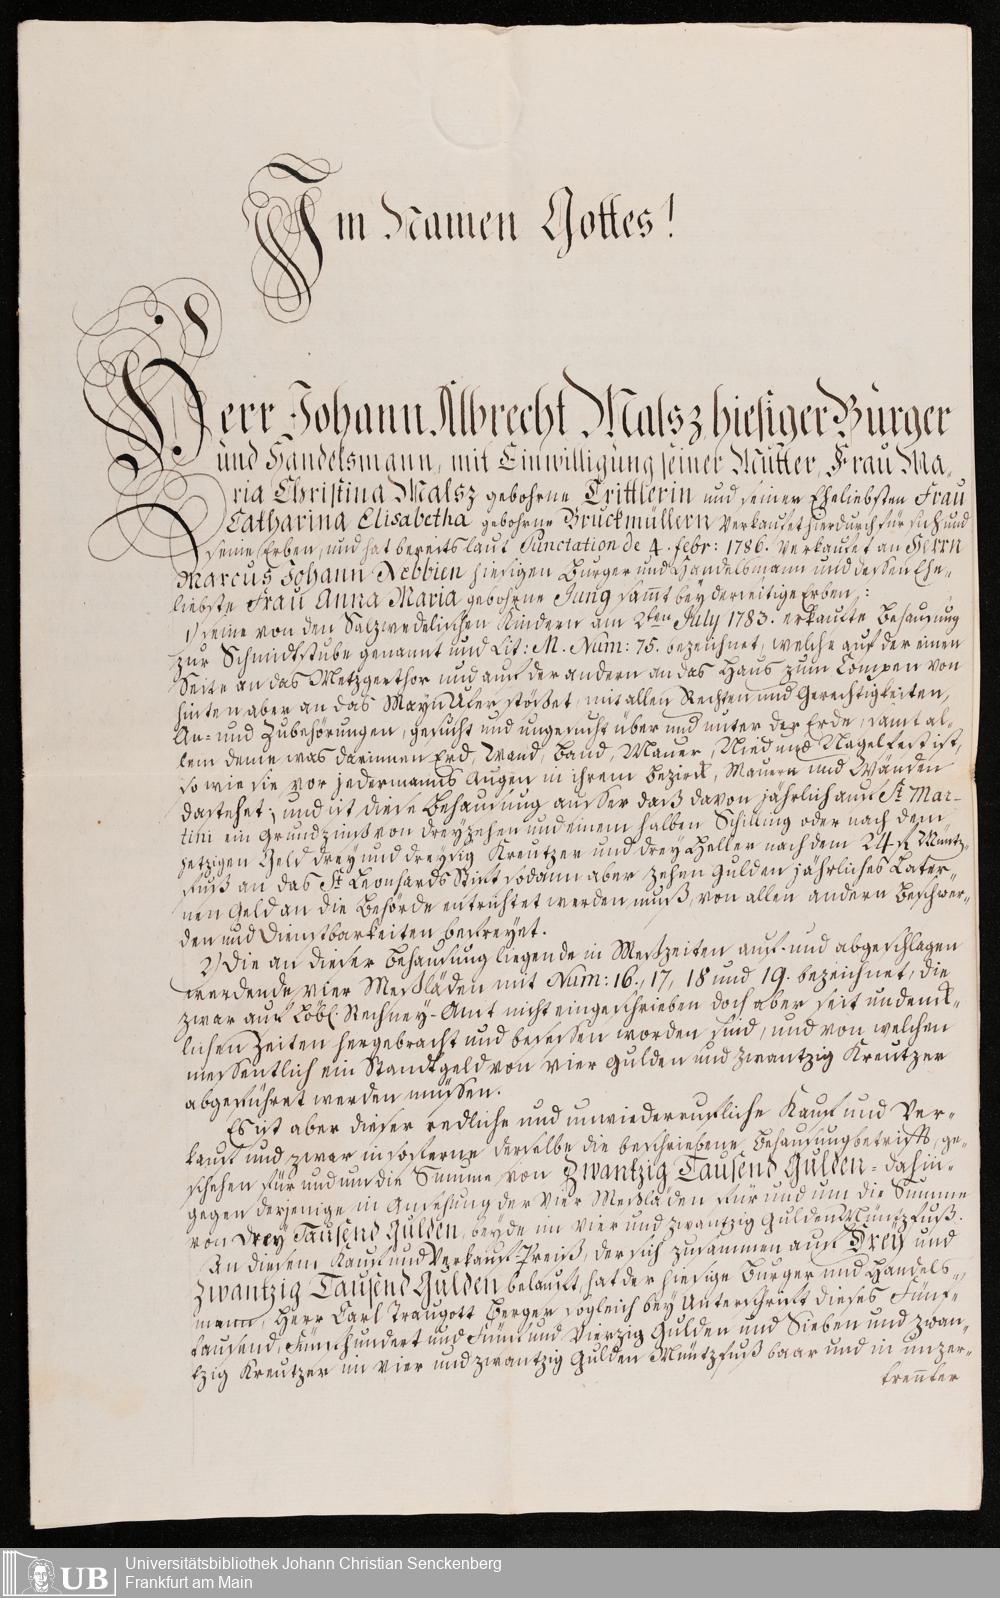 Im Namen Gottes!
Herr Johann Albrecht Malsz, hiesiger Bürger
und Handelsmann, mit Einwilligung seiner Mutter, Frau Ma-
ria Christina Malsz gebohrne Trittlerin und seiner Eheliebsten Frau
Catharina Elisabetha gebohrne Bruckmüllern verkaufet hierdurch für sich und
seine Erben, und hat bereits laut Punctation de 4. febr: 1786. verkaufet an Herrn
Marcus Johann Nebbien hiesigen Burger und Handelsmann und dessen Ehe-
liebste Frau Anna Maria gebohrne Jung samt beyderseitige Erben,:
1) seine von den Salzwedelischen Kindern am 2ten July 1783. erkaufte Behausung
zur Schmidtstube genannt und Lit: M. Num: 75. bezeichnet, welche auf der einen
Seite an das Metzgerthor und auf der andern an das Haus zum Compen von
hinten aber an das Mayn Ufer stößet, mit allen Rechten und Gerechtigkeiten,
An- und Zubehörungen, gesucht und ungesucht über und unter der Erde, samt al-
lem deme was darinnen Erd, Wand, Band, Mauer, Nied und Nagelfest ist,
so wie sie vor jedermanns Augen in ihrem Bezirck, Mauern und Wänden
dastehet; und ist diese Behausung ausser daß davon jährlich auf St Mar-
tini ein Grundzinß von dreyzehen und einem halben Schilling oder nach dem
jetzigen Geld drey und dreysig Kreutzer und drey Heller nach dem 24 fl Müntz-
fuß an das St Leonhards Stift sodann aber zehen Gulden jährliches Later-
nen Geld an die Behörde entrichtet werden muß, von allen andern Beschwer-
den und Dienstbarkeiten befreyet.
2) Die an dieser Behausung liegende in Meßzeiten auf- und abgeschlagen
werdende vier Meßläden mit Num: 16., 17, 18 und 19. bezeichnet, die
zwar auf Löbl: Rechney-Amt nicht eingeschrieben doch aber seit undenck-
lichen Zeiten hergebracht und besessen worden sind, und von welchen
messentlich ein Standtgeld von vier Gulden und zwantzig Kreutzer
abgeführet werden müssen.
Es ist aber dieser redliche und unwiederrufliche Kauf und Ver-
kauf und zwar in soferne derselbe die beschriebene Behausung betrifft, ge-
schehen für und um die Summe von Zwantzig Tausend Gulden - dahin-
gegen derjenige in Ansehung der vier Meßläden für und um die Summe
von Drey Tausend Gulden, beyde im vier und zwantzig Gulden Müntzfuß.
An diesem Kauf und Verkauf-Preiß, der sich zusammen auf Drey und
Zwantzig Tausend Gulden belauft, hat der hiesige Burger und Handels-
mann, Herr Carl Traugott Berger sogleich bey Unterschrift dieses Fünf-
tausend, Fünfhundert und Fünf und Vierzig Gulden und Sieben und zwan-
tzig Kreutzer im vier und zwantzig Gulden Müntzfuß baar und in unzer-
trennter
UB
Universitätsbibliothek Johann Christian Senckenberg
Frankfurt am Main